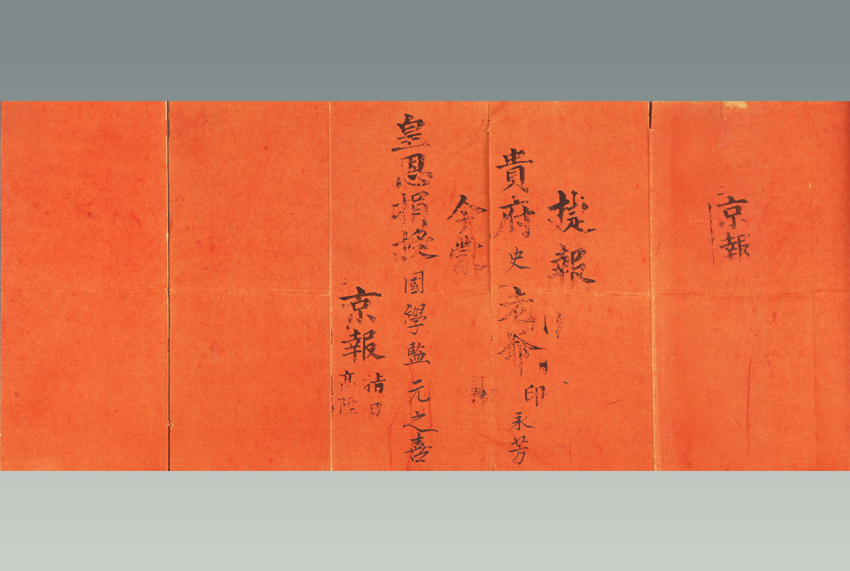 京報
捷報
貴府史老爺印永芳
今蒙
皇恩捐授國學監元之喜
京報
指日
高陞